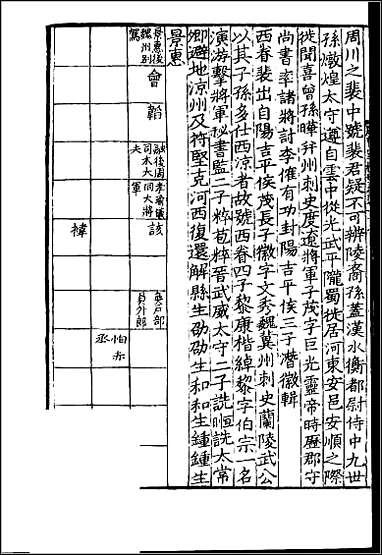 周川之裴中號裴君疑不可辨陵裔孫蓋漢水衡都尉侍中九世
孫燉煌太守遵自雲中從光武平隴蜀徙居河東安邑安順之際
徙聞喜曾孫曄并州刺史度遼將軍子茂字巨光靈帝時歷郡守
尚書率諸將討李傕有功封陽吉平侯三子潛徽輯
西眷裴出自陽吉平侯茂長子徽字文秀魏冀州刺史蘭陵武公
以其子孫多仕西涼者故號西眷四子黎康楷綽黎字伯宗一名
演游擊將軍祕書監二子粹苞粹晉武威太守二子詵暅詵太常
卿避地涼州及苻堅克河西復還解縣生劭劭生和和生鍾鍾生
景惠
景惠後魏州別駕
會
韜
融後周司本大夫
孝瑜儀同大將軍
該
禕
奭戶部員外郎
怕亦丞